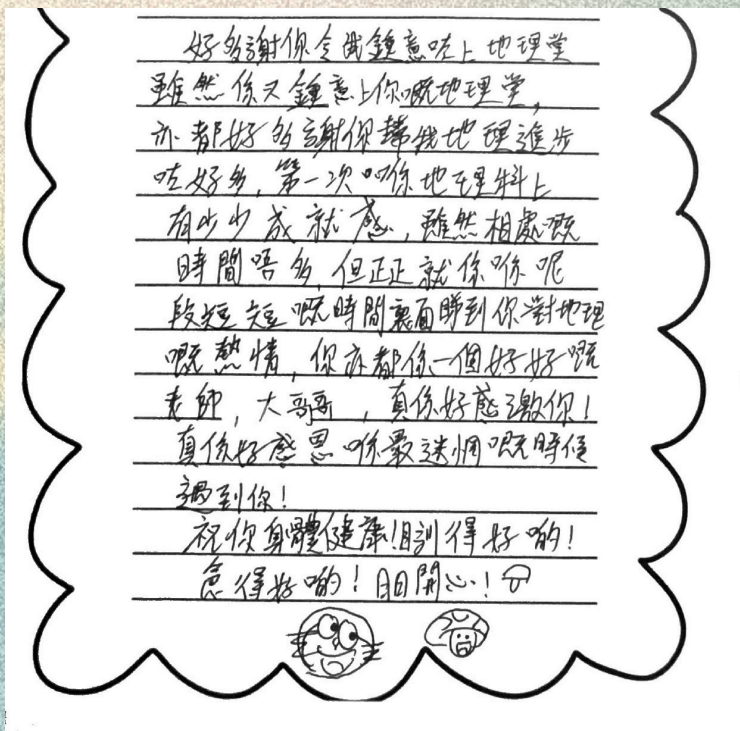 好多謝你令我鍾意咗上地理堂
雖然係又鍾意上你嘅地理堂,
亦都好多謝你幫我地理進步
咗好多, 第一次喺地理科上
有少少成就感, 雖然相處嘅
時間唔多, 但正正就係喺呢
段短短嘅時間裏面睇到你對地理
嘅熱情, 你亦都係一個好好嘅
老師, 大哥哥, 真係好感激你!
真係好感恩喺最迷惘嘅時候
遇到你!
祝你身體健康! 瞓得好啲!
食得好啲! 日日開心!